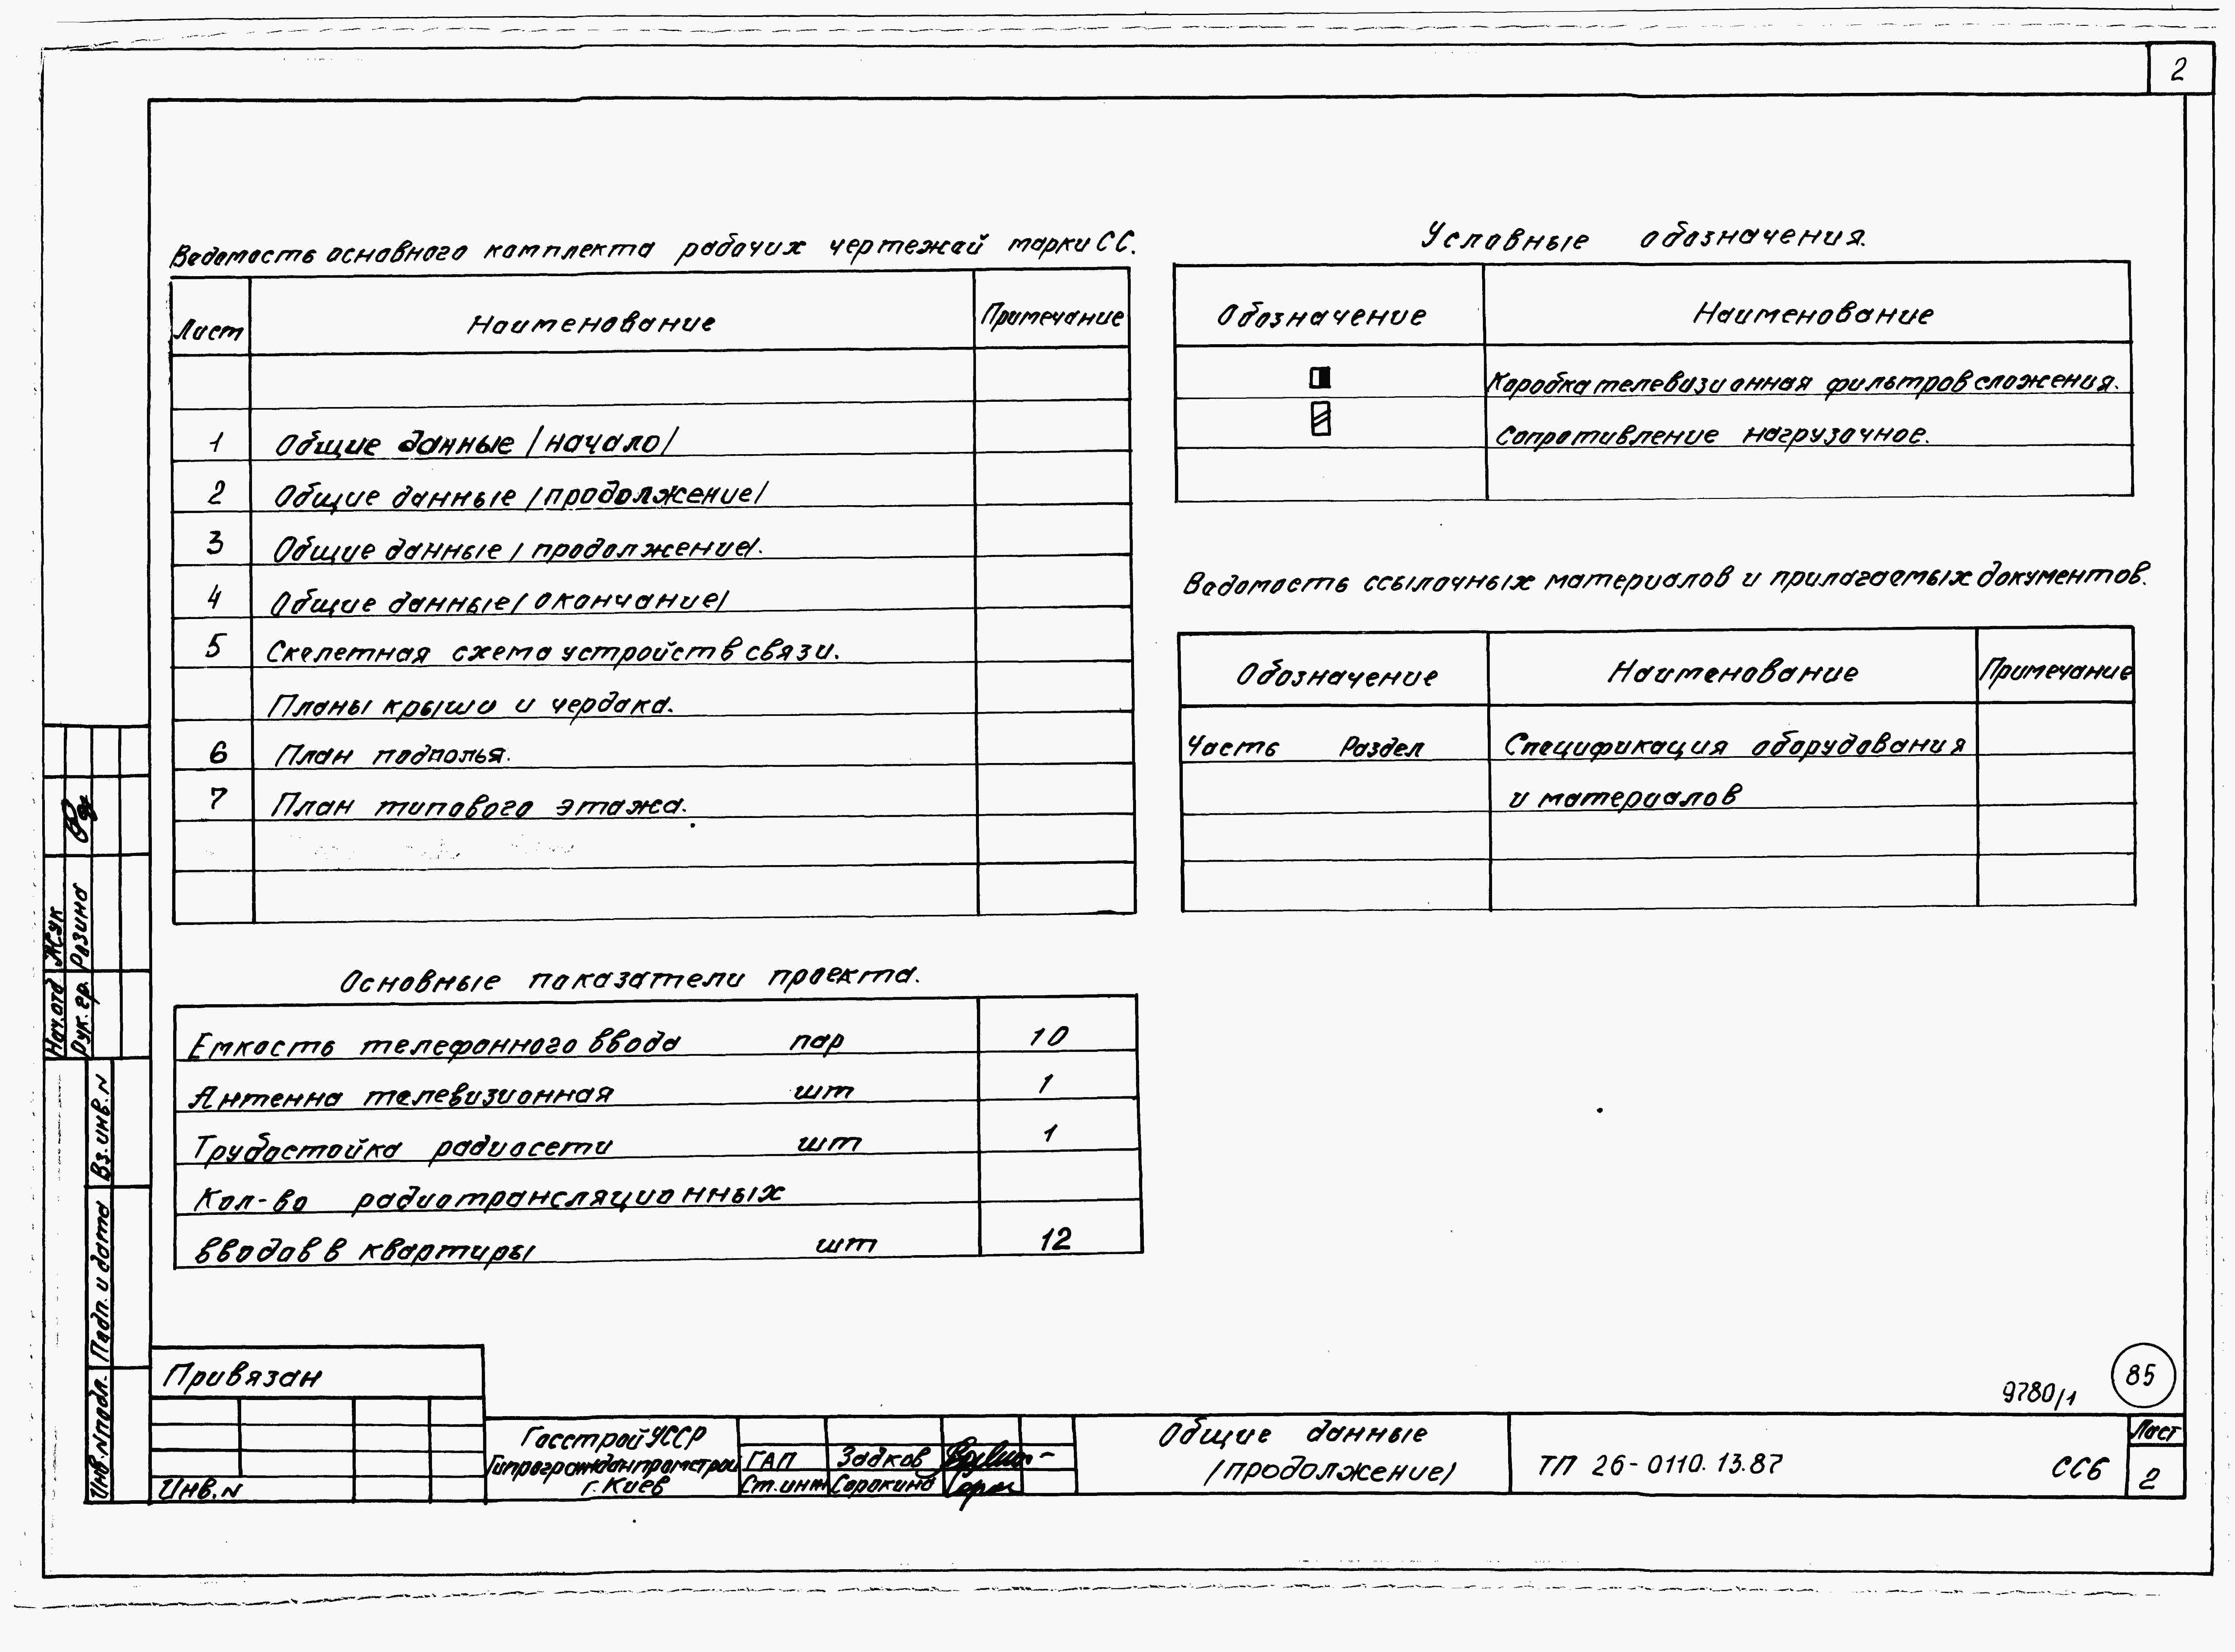 2
Ведомость основного комплекта рабочих чертежей марки СС.
Лист Наименование Примечание
1 Общие данные /начало/
2 Общие данные /продолжение/
3 Общие данные /продолжение/.
4 Общие данные /окончание/
5 Скелетная схема устройств связи.
Планы крыши и чердака.
6 План подполья.
7 План типового этажа.
Основные показатели проекта.
Емкость телефонного ввода пар 10
Антенна телевизионная шт 1
Трубостойка радиосети шт 1
Кол-во радиотрансляционных
вводов в квартиры шт 12
Условные обозначения.
Обозначение Наименование
Коробка телевизионная фильтров сложения.
Сопротивление нагрузочное.
Ведомость ссылочных материалов и прилагаемых документов.
Обозначение Наименование Примечание
Часть Раздел Спецификация оборудования
и материалов
Нач.отд Жук
Рук. гр. Разина
Вз.инв.N
Подп. и дата
Инв.Nподл.
Привязан
Инв.N
Госстрой УССР
Гипрогражданпромстрой
г. Киев
ГАП Задков
Ст.инж Сорокина
Общие данные
/продолжение/
9780/1
85
ТП 26-0110.13.87 СС6
Лист
2